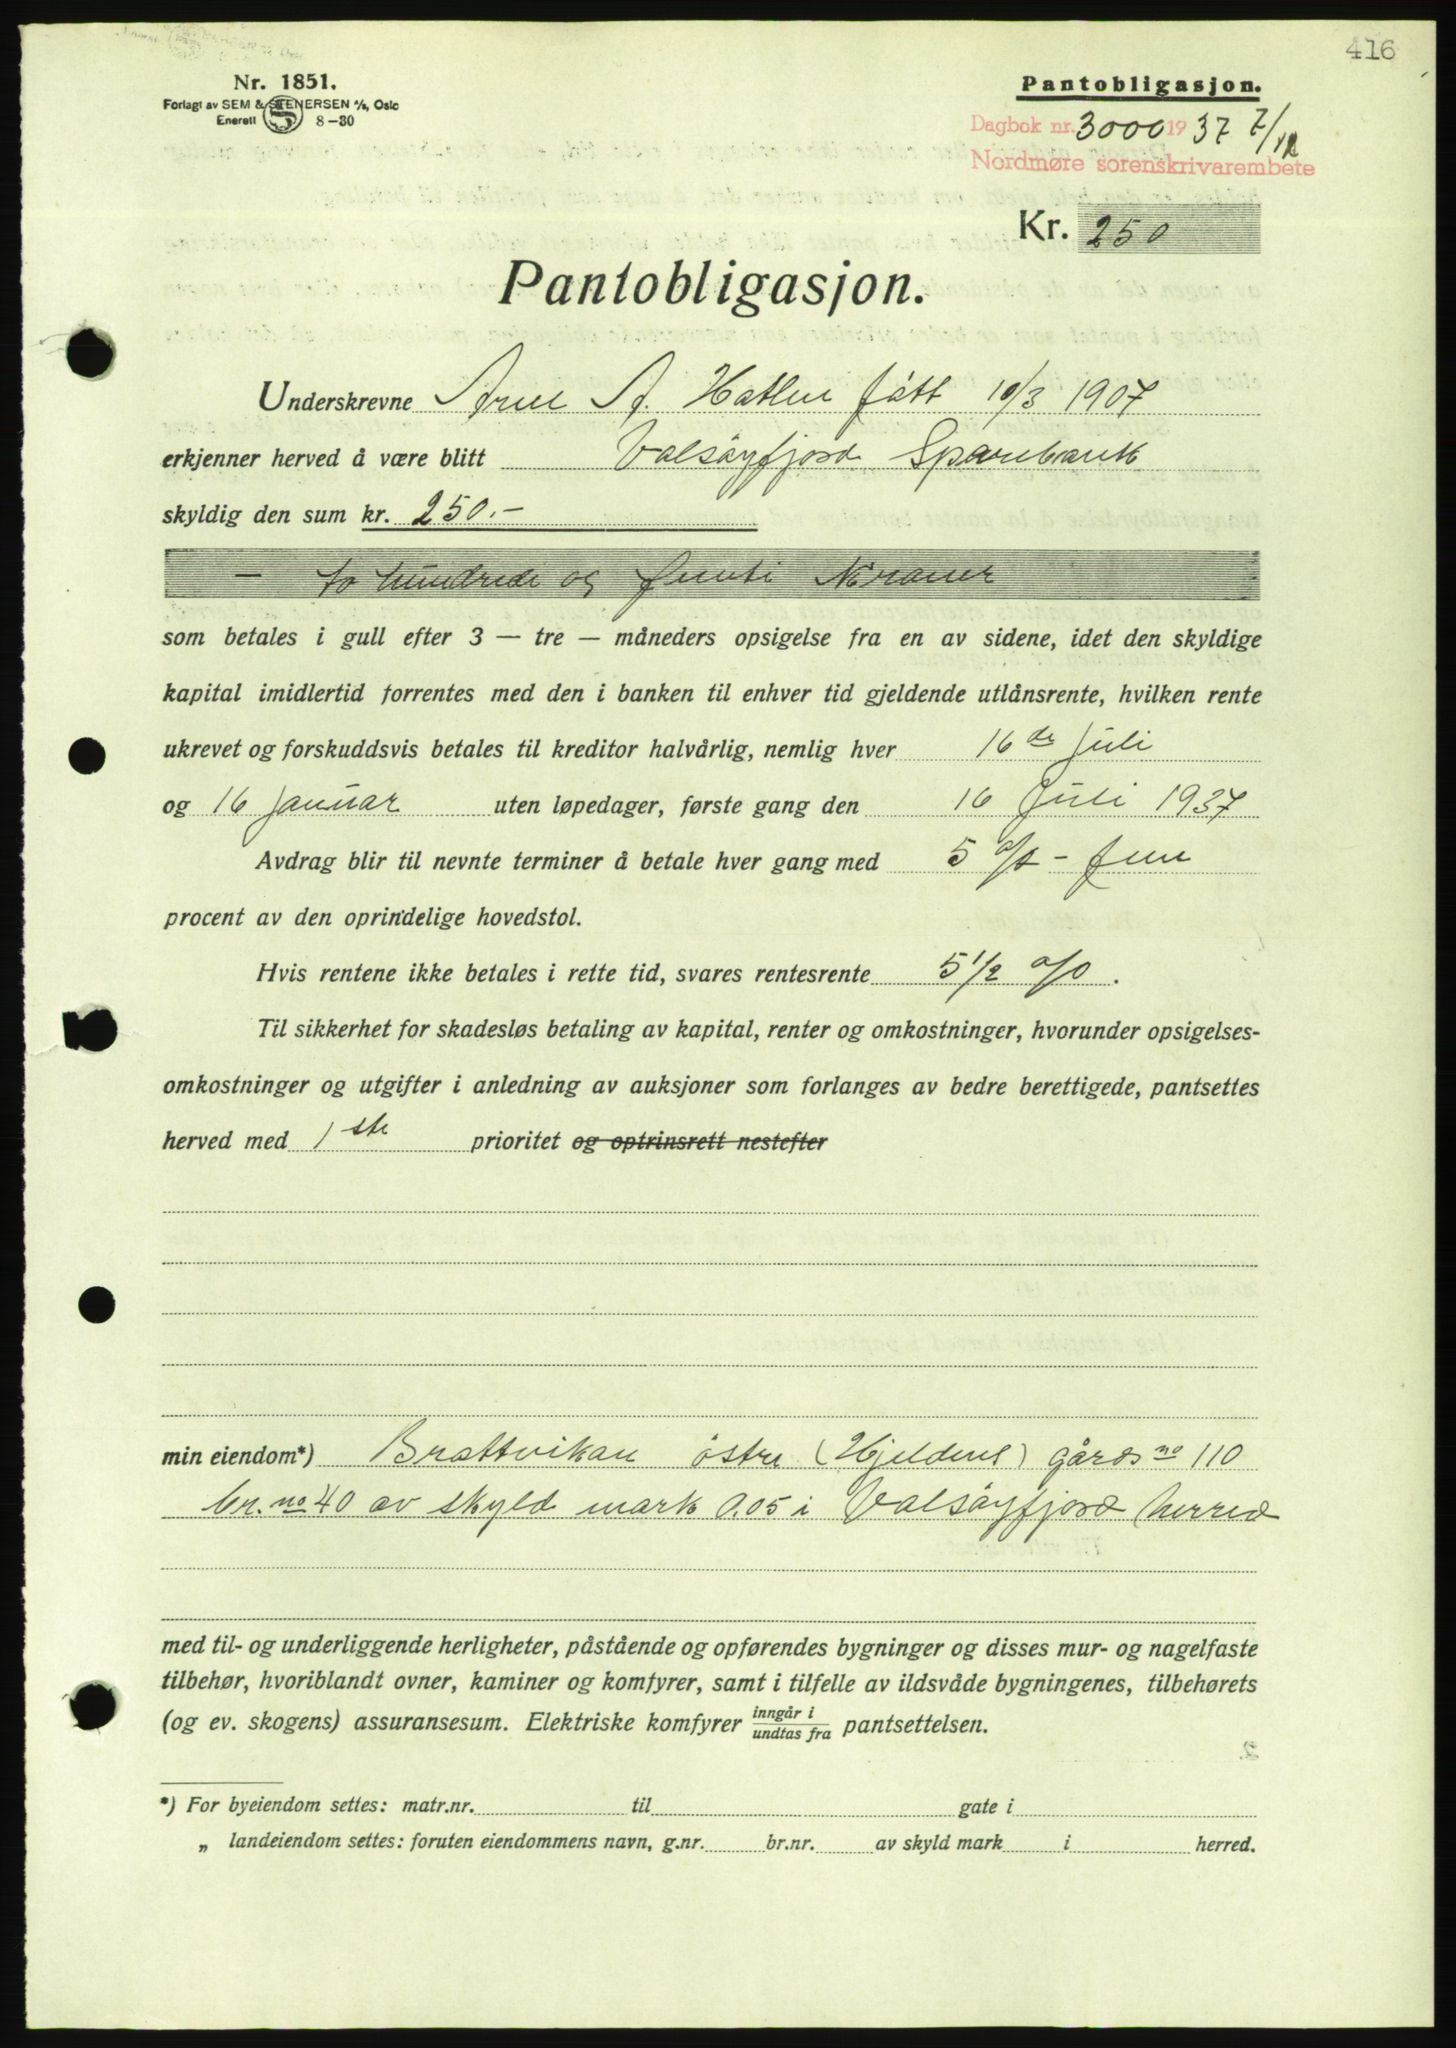 416
Nr. 1851.
Forlagt av SEM & STENERSEN A/S, Oslo
Enerett 8-30
Pantobligasjon.
Dagbok nr. 3000 1937 7/12
Nordmøre sorenskrivarembete
Kr. 250
Pantobligasjon.
Underskrevne Arne A. Hatlen fött 10/3 1907
erkjenner herved å være blitt Valsöyfjord Sparebank
skyldig den sum kr. 250.-
- to hundrede og femti Kroner
som betales i gull efter 3 — tre — måneders opsigelse fra en av sidene, idet den skyldige
kapital imidlertid forrentes med den i banken til enhver tid gjeldende utlånsrente, hvilken rente
ukrevet og forskuddsvis betales til kreditor halvårlig, nemlig hver 16de Juli
og 16 Januar uten løpedager, første gang den 16 Juli 1937
Avdrag blir til nevnte terminer å betale hver gang med 5 % - fem
procent av den oprindelige hovedstol.
Hvis rentene ikke betales i rette tid, svares rentesrente 5 1/2 %.
Til sikkerhet for skadesløs betaling av kapital, renter og omkostninger, hvorunder opsigelses-
omkostninger og utgifter i anledning av auksjoner som forlanges av bedre berettigede, pantsettes
herved med 1ste prioritet og optrinsrett nestefter
min eiendom*) Brattvikan östre (Hjeldnes) gårds no 110
br. no 40 av skyld mark 0.05 i Valsöyfjord herred
med til- og underliggende herligheter, påstående og opførendes bygninger og disses mur- og nagelfaste
tilbehør, hvoriblandt ovner, kaminer og komfyrer, samt i tilfelle av ildsvåde bygningenes, tilbehørets
(og ev. skogens) assuransesum. Elektriske komfyrer inngår i / undtas fra pantsettelsen.
*) For byeiendom settes: matr.nr. til gate i
„ landeiendom settes: foruten eiendommens navn, g.nr. br.nr. av skyld mark i herred.